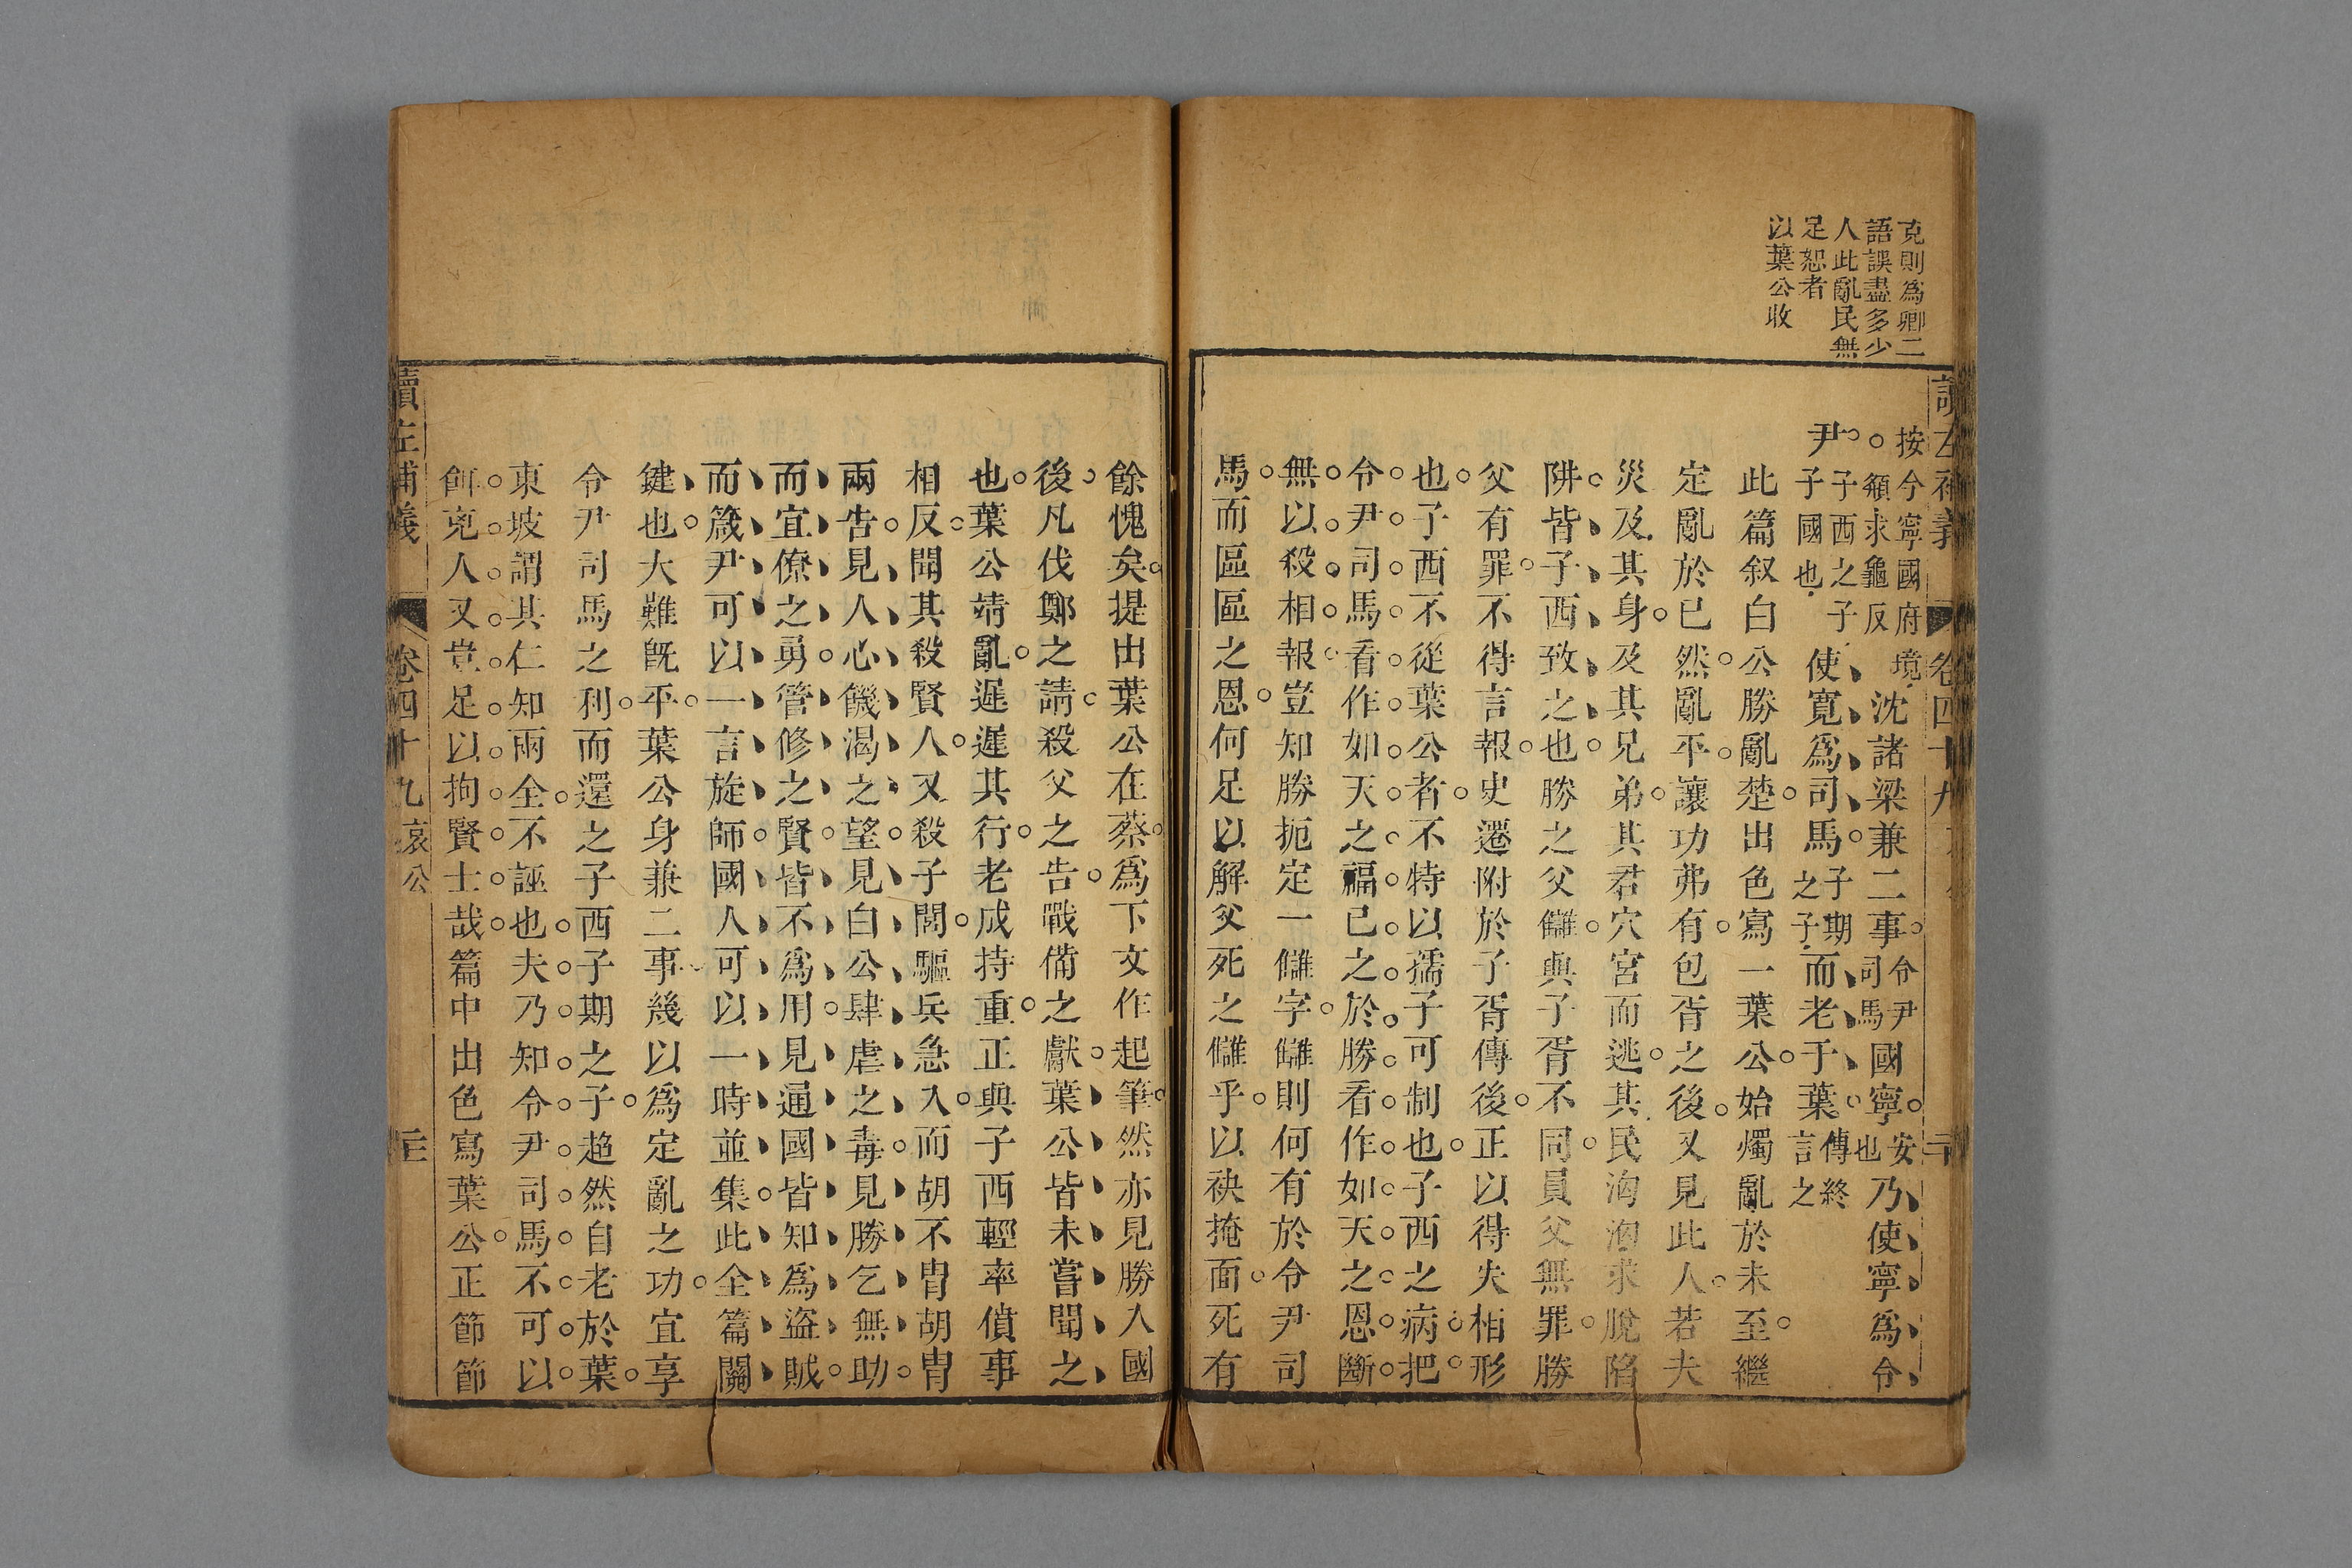 克則爲卿二
語誤盡多少
人此亂民無
足恕者
以葉公收
按今寧國府境
頟求龜反
沈諸梁兼二事
令尹
司馬
國寧
安
也
乃使寧爲令
尹
子西之子
子國也
使寬爲司馬
子期
之子
而老于葉
傳終
言之
此篇叙白公勝亂楚出色寫一葉公始燭亂於未至繼
定亂於已然亂平讓功弗有包胥之後又見此人若夫
災及其身及其兄弟其君穴宮而逃其民洶洶求脫陷
阱皆子西致之也勝之父讎與子胥不同員父無罪勝
父有罪不得言報史遷附於子胥傳後正以得失相形
也子西不從葉公者不特以孺子可制也子西之病把
令尹司馬看作如天之福己之於勝看作如天之恩斷
無以殺相報豈知勝扼定一讎字讎則何有於令尹司
馬而區區之恩何足以解父死之讎乎以袂掩面死有
餘愧矣提出葉公在蔡爲下文作起筆然亦見勝入國
後凡伐鄭之請殺父之告戰備之獻葉公皆未嘗聞之
也葉公靖亂遲遲其行老成持重正與子西輕率僨事
相反聞其殺賢人又殺子閭驅兵急入而胡不胄胡胄
兩告見人心饑渴之望見白公肆虐之毒見勝乞無助
而宜僚之勇管修之賢皆不爲用見通國皆知爲盜賊
而箴尹可以一言旋師國人可以一時並集此全篇關
鍵也大難旣平葉公身兼二事幾以爲定亂之功宜享
令尹司馬之利而還之子西子期之子超然自老於葉
東坡謂其仁知兩全不誣也夫乃知令尹司馬不可以
餌克人又豈足以拘賢士哉篇中出色寫葉公正節節
讀左補義
卷四十九哀公